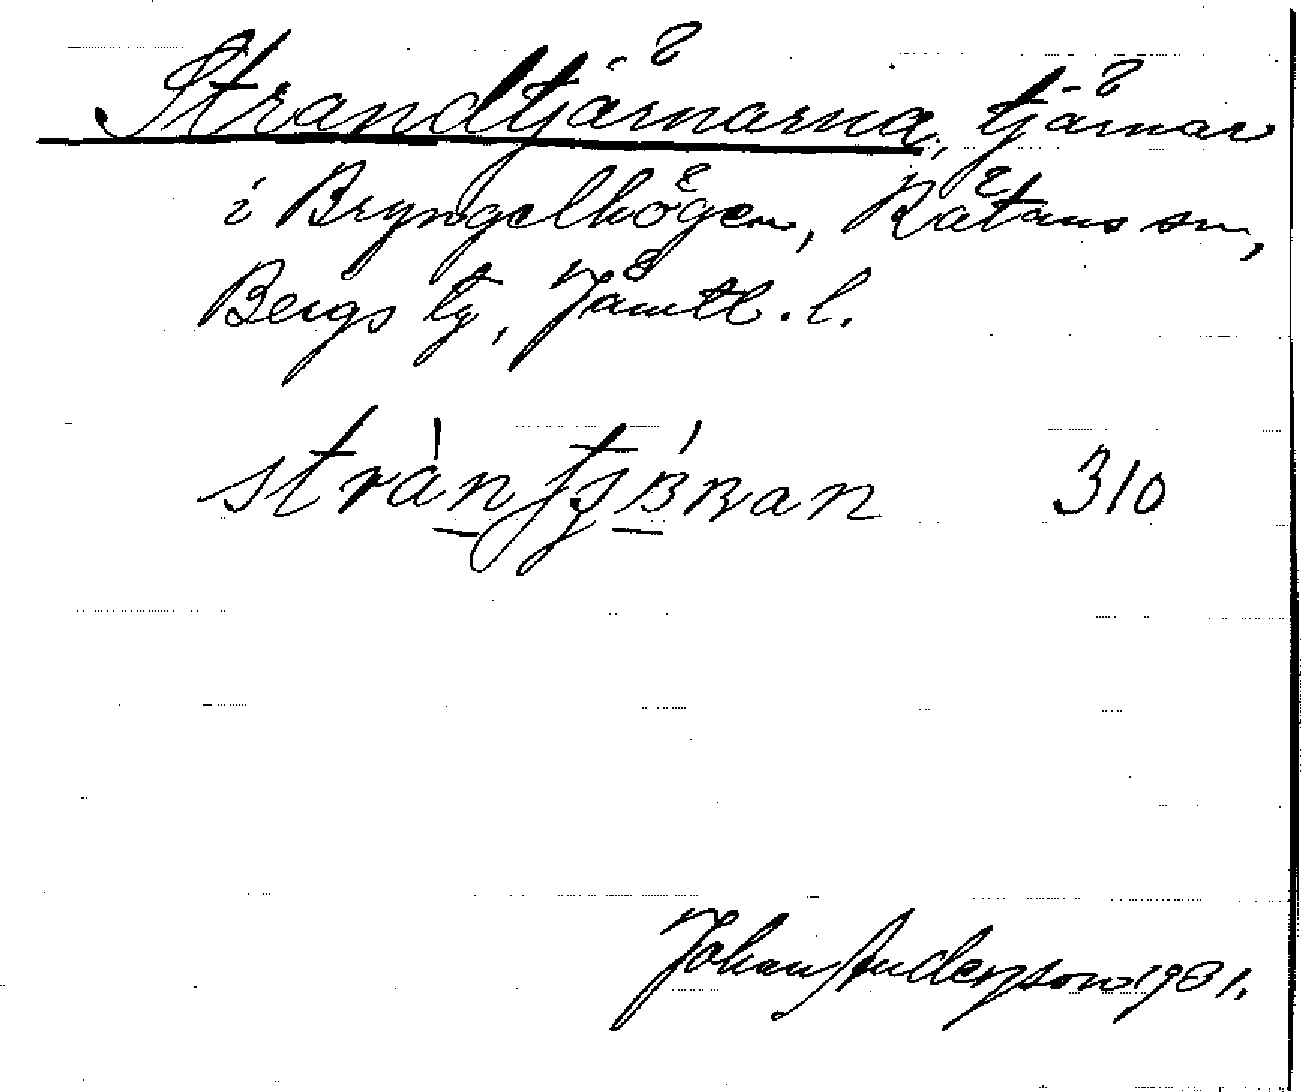 Strandtjärnarna, tjärnar
i Bryngelhögen, Rätans sn,
Bergs tg, Jämtl. l.
stràn 310
Johan Anderson 1931.